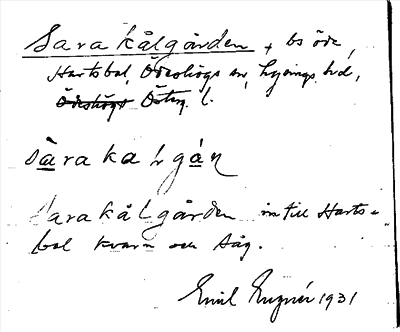 Sara kålgården, + bs öde,
Hartsbol, Ödeshögs sn, Lysings hd,
Ödeshögs Österg. l.
sàrakaLgáṇ
Sarakålgården in till Harts-
bol kvarn och såg.
Emil 1931